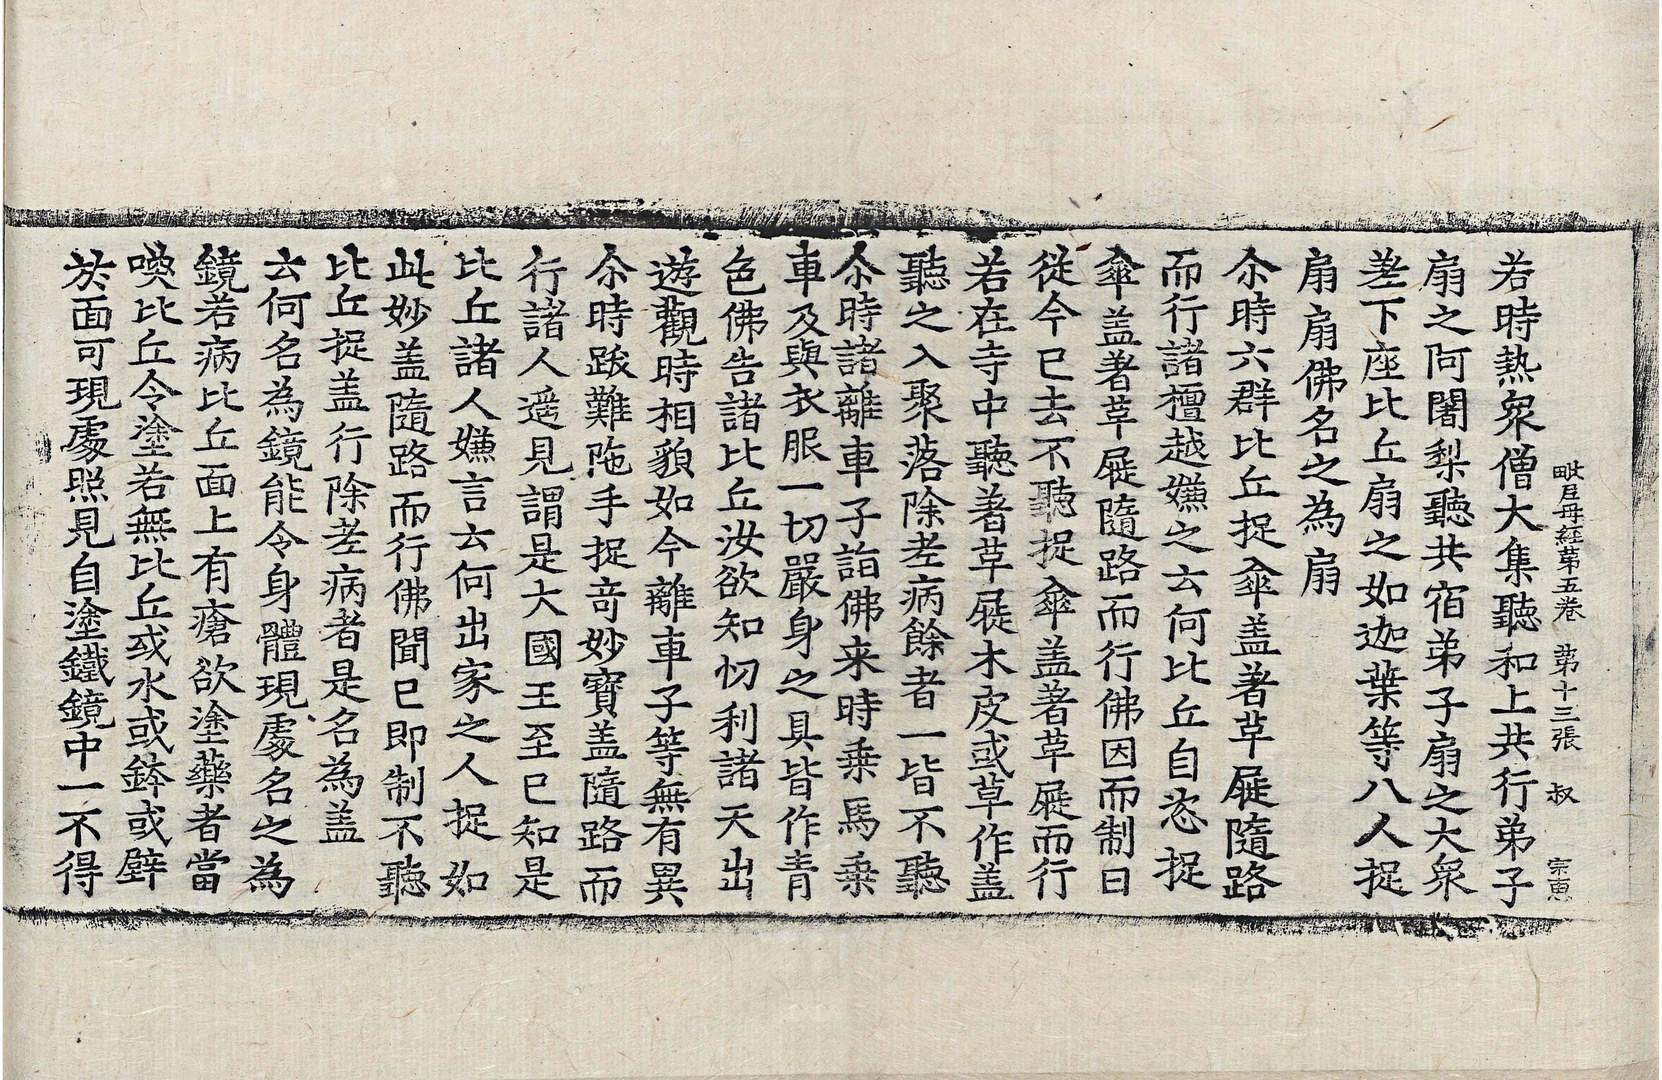 毗尼母經第五卷　第十三張　叔　宗惠
若時熱衆僧大集聽和上共行弟子
扇之阿闍梨聽共宿弟子扇之大衆
差下座比丘扇之如迦葉等八人捉
扇扇佛名之為扇
尒時六群比丘捉傘盖著草屣隨路
而行諸檀越嫌之云何比丘自恣捉
傘盖著草屣隨路而行佛因而制曰
從今已去不聽捉傘盖著草屣而行
若在寺中聽著草屣木皮或草作盖
聽之入聚落除老病餘者一皆不聽
尒時諸離車子詣佛来時乗馬乗
車及與衣服一切嚴身之具皆作青
色佛告諸比丘汝欲知忉利諸天出
遊觀時相貌如今離車子等無有異
尒時跋難陁手捉竒妙寳盖隨路而
行諸人遥見謂是大國王至已知是
比丘諸人嫌言云何出家之人捉如
此妙盖隨路而行佛聞已即制不聽
比丘捉盖行除老病者是名為盖
云何名為鏡能令身體現處名之為
鏡若病比丘面上有瘡欲塗藥者當
喚比丘令塗若無比丘或水或鉢或壁
於面可現處照見自塗鐵鏡中一不得